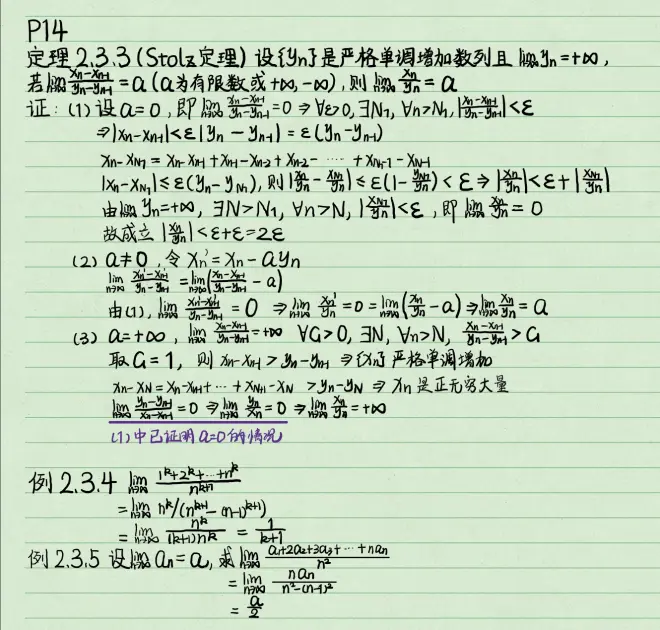 P14
定理 2.3.3 (Stolz定理) 设{yn}是严格单调增加数列且 lim n→∞ yn = +∞,
若 lim n→∞ (xn-xn-1)/(yn-yn-1) = a (a为有限数或+∞, -∞), 则 lim n→∞ xn/yn = a
证: (1) 设 a=0, 即 lim n→∞ (xn-xn-1)/(yn-yn-1) = 0 ⇒ ∀ε>0, ∃N1, ∀n>N1, |(xn-xn-1)/(yn-yn-1)| < ε
⇒ |xn-xn-1| < ε|yn - yn-1| = ε(yn-yn-1)
xn - xN1 = xn-xn-1 + xn-1-xn-2 + xn-2 - ···· + xN1-1 - xN-1
|xn-xN1| ≤ ε(yn-yN1), 则 |xn/yn - xN1/yn| ≤ ε(1 - yN1/yn) < ε ⇒ |xn/yn| < ε + |xN1/yn|
由 lim n→∞ yn = +∞, ∃N>N1, ∀n>N, |xN1/yn| < ε, 即 lim n→∞ xN1/yn = 0
故成立 |xn/yn| < ε+ε = 2ε
(2) a≠0, 令 xn' = xn - ayn
lim n→∞ (xn'-xn-1')/(yn-yn-1) = lim n→∞ ((xn-xn-1)/(yn-yn-1) - a)
由(1), lim n→∞ (xn'-xn-1')/(yn-yn-1) = 0 ⇒ lim n→∞ xn'/yn = 0 = lim n→∞ (xn/yn - a) ⇒ lim n→∞ xn/yn = a
(3) a=+∞, lim n→∞ (xn-xn-1)/(yn-yn-1) = +∞ ∀G>0, ∃N, ∀n>N, (xn-xn-1)/(yn-yn-1) > G
取G=1, 则 xn-xn-1 > yn-yn-1 ⇒ {xn}严格单调增加
xn-xN = xn-xn-1 + ··· + xN+1-xN > yn-yN ⇒ xn 是正无穷大量
lim n→∞ (yn-yn-1)/(xn-xn-1) = 0 ⇒ lim n→∞ yn/xn = 0 ⇒ lim n→∞ xn/yn = +∞
(1)中已证明a=0的情况
例 2.3.4 lim n→∞ (1^k+2^k+···+n^k)/n^(k+1)
= lim n→∞ n^k/(n^(k+1) - (n-1)^(k+1))
= lim n→∞ n^k/((k+1)n^k) = 1/(k+1)
例 2.3.5 设 lim n→∞ an = a, 求 lim n→∞ (a1+2a2+3a3+···+nan)/n²
= lim n→∞ nan/(n²-(n-1)²)
= a/2